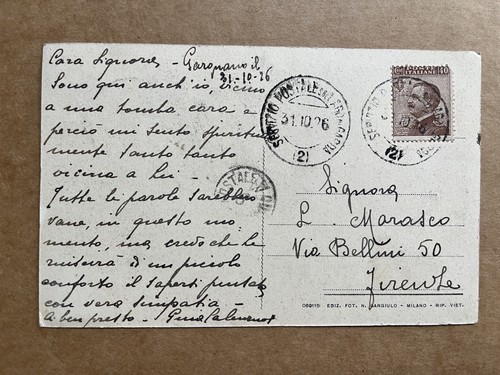 Cara Signora - Gargnano il
31-10-26
Sono qui anch'io, vicino
a una tomba cara e
perciò mi sento spiritual
mente tanto tanto
vicina a lei -
Tutte le parole sarebbero
vane, in questo mo
mento, ma credo che le
riuscirà di un piccolo
conforto il saperti
con vera simpatia -
A ben presto - Gina
C. 40
ITALIANE
SERVIZIO POSTALE
31.10.26
(2)
SERVIZIO
(2)
Signora
L. Marasco
Via Bellini 50
Firenze
060115 EDIZ. FOT. N. GARGIULO - MILANO - RIP. VIET.